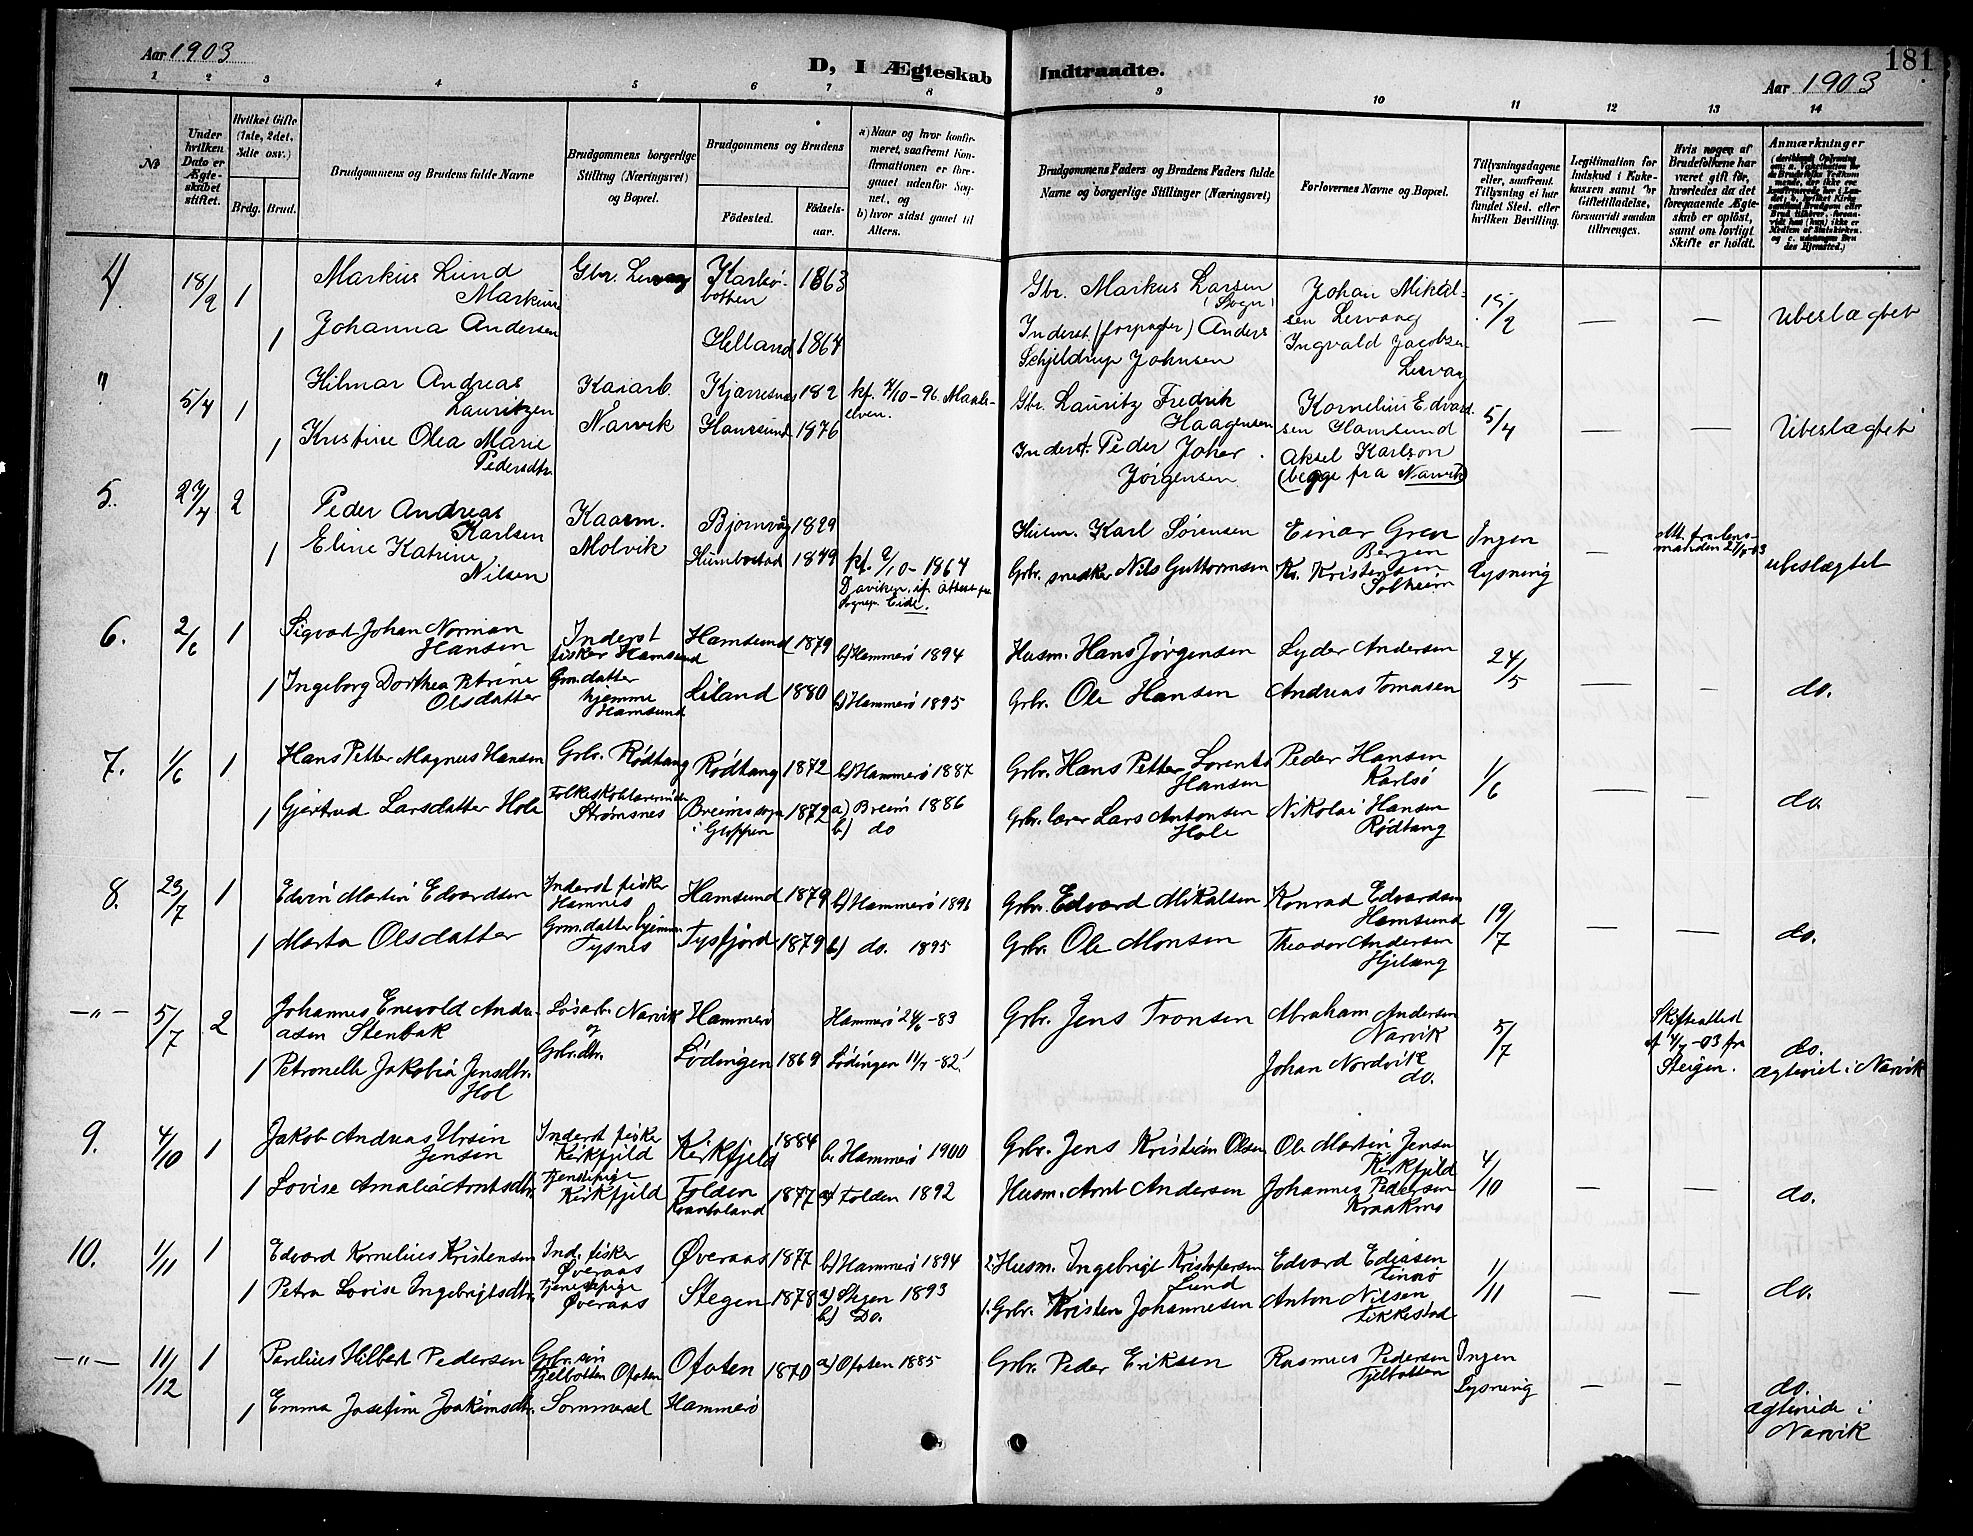 Aar 1903
D, I Ægteskab Indtraadte.
Aar 1903
181
1 2 3 4 5 6 7 8 9 10 11 12 13 14
No
Under hvilken Dato er Ægteskabet stiftet.
Hvilket Gifte (1ste, 2det, 3die osv.)
Brdg. Brud.
Brudgommens og Brudens fulde Navne
Brudgommens borgerlige Stilling (Næringsvei) og Bopæl.
Brudgommens og Brudens
Födested.
Födselsaar.
a) Naar og hvor konfirmeret, saafremt Konfirmationen er foregaaet udenfor Sognet, og
b) hvor sidst gaaet til Alters.
Brudgommens Faders og Brudens Faders fulde Navne og borgerlige Stillinger (Næringsvei)
Forlovernes Navne og Bopæl.
Tillysningsdagene eller, saafremt Tillysning ei har fundet Sted, efter hvilken Bevilling.
Legitimation for Indskud i Enkekassen samt for Giftetilladelse, forsaavidt saadan tiltrænges.
Hvis nogen af Brudefolkene har været gift før, hvorledes da det foregaaende Ægteskab er oplöst, samt om lovligt Skifte er holdt.
Anmærkninger
4 18/2 1 Markus Lund Markusen Gbr. Lervag Karlsöbotten 1863 Gbr. Markus Larsen (Sogn) Johan Mikalsen Lervaag 15/2 — — Ubeslægtet
1 Johanna Andersen Helland 1864 Inderst (forpagter) Anders Schjeldrup Johnsen Ingvald Jacobsen Lervag
" 5/4 1 Hilmar Andreas Lauritzen Kaiarb. Narvik Kjærresnes 182 kf. 4/10-96 Maalselven. Gbr. Lauritz Fredrik Haagensen Kornelius Edvardsen Hamsund 5/4 — — Ubeslægtet
1 Kristine Olea Marie Pedersdtr. Hamsund 1876 Inderst. Peder Johan Jørgensen Aksel Karlson (begge fra Narvik)
5. 27/4 2 Peder Andreas Karlsen Kaarm. Molvik Bjørnvåg 1829 Husm. Karl Sørensen Einar Gren Bergen Ingen Lysning — Att. fra lensmanden 27/4-03 ubeslægtet
1 Eline Katrine Nilsen Humbostad 1849 kf. 2/10-1864 Daviken. if. Attest fra Sognepr. Eide. Grbr. snedker Nils Guttormsen Kr. Kristensen Solheim
6. 2/6 1 Sigvart Johan Norman Hansen Inderst fisker Hamsund Hamsund 1879 b) Hammerö 1894 Husm. Hans Jørgensen Lyder Andersen 24/5 — — do.
1 Ingeborg Dorthea Petrine Olsdatter Grmdatter hjemme Hamsund Liland 1880 b) Hammerö 1895 Grbr. Ole Hansen Andreas Tomasen
7. 1/6 1 Hans Petter Magnus Hansen Grbr. Rødtang Rødtang 1872 b) Hammerö 1887 Grbr. Hans Petter Lorents Hansen Peder Hansen Karlsö 1/6 — — do.
1 Gjertrud Larsdatter Hole Folkeskolelærerinde Strømsnes Breims sogn i Gloppen 1872 a) Breim 1886 b) do Grbr. lærer Lars Antonsen Hole Nikolai Hansen Rødtang
8. 23/7 1 Edvin Martin Edvardsen Inderst fisker Hamnes Hamsund 1879 b) Hammerö 1896 Grbr. Edvard Mikalsen Konrad Edvardsen Hamsund 19/7 — — do.
1 Marta Olsdatter Grmdatter hjemme Tysnes Tysfjord 1879 b) do. 1895 Grbr. Ole Monsen Theodor Andersen Hjelvang
—"— 5/7 2 Johannes Enevold Andreasen Stenbak Løsarb. Narvik og Hammerö Hammerö 24/6-83 Grbr. Jens Tronsen Abraham Andersen Narvik 5/7 Skifteattest af 4/7-03 fra Steigen. do.
1 Petronelle Jakobia Jensdtr. Hol Grbr.dtr. Lödingen 1869 Lödingen 11/7-82. Johan Nordvik do. ægteviet i Narvik
9. 4/10 1 Jakob Andreas Ursin Jensen Inderst fisker Kirkfjeld Kirkfjeld 1884 b. Hammerö 1900 Grbr. Jens Kristian Olsen Ole Martin Jensen Kirkfjeld 4/10 — — do.
1 Lovise Amalia Arntsdtr. Tjenstepige Kirkfjeld Folden 1877 a) Folden 1892 Husm. Arnt Andersen Johannes Pedersen Kraakmo
10. 1/11 1 Edvard Kornelius Kristensen Ind. fisker Øveraas Øveraas 1877 b) Hammerö 1894 2. Husm. Ingebrigt Kristofersen Lund Edvard Ediasen Finnö 1/11 — — do.
1 Petra Lovise Ingebrigtsdtr. Tjenestepige Øveraas Stegen 1878 a) Stegen 1893 b) Do. 1. Grbr. Kristen Johannesen Anton Nilsen Fikkestad
—"— 11/12 1 Parelius Hilbert Pedersen Grbr.søn Fjelbotten Ofoten Ofoten 1870 a) Ofoten 1885 Grbr. Peder Eriksen Rasmus Pedersen Fjelbotten Ingen Lysning — — do.
1 Emma Josefine Joakimsdtr. Sommersel Hammerö ægteviede i Narvik